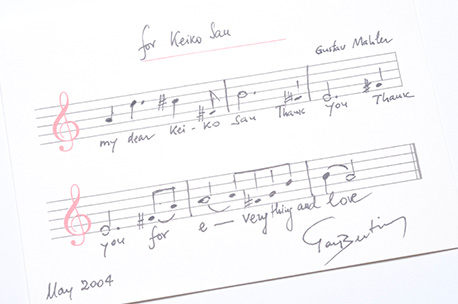 for Keiko San
Gustav Mahler
my dear Kei-ko San Thank you Thank
you for e—verything and love
Gary Bertini
May 2004